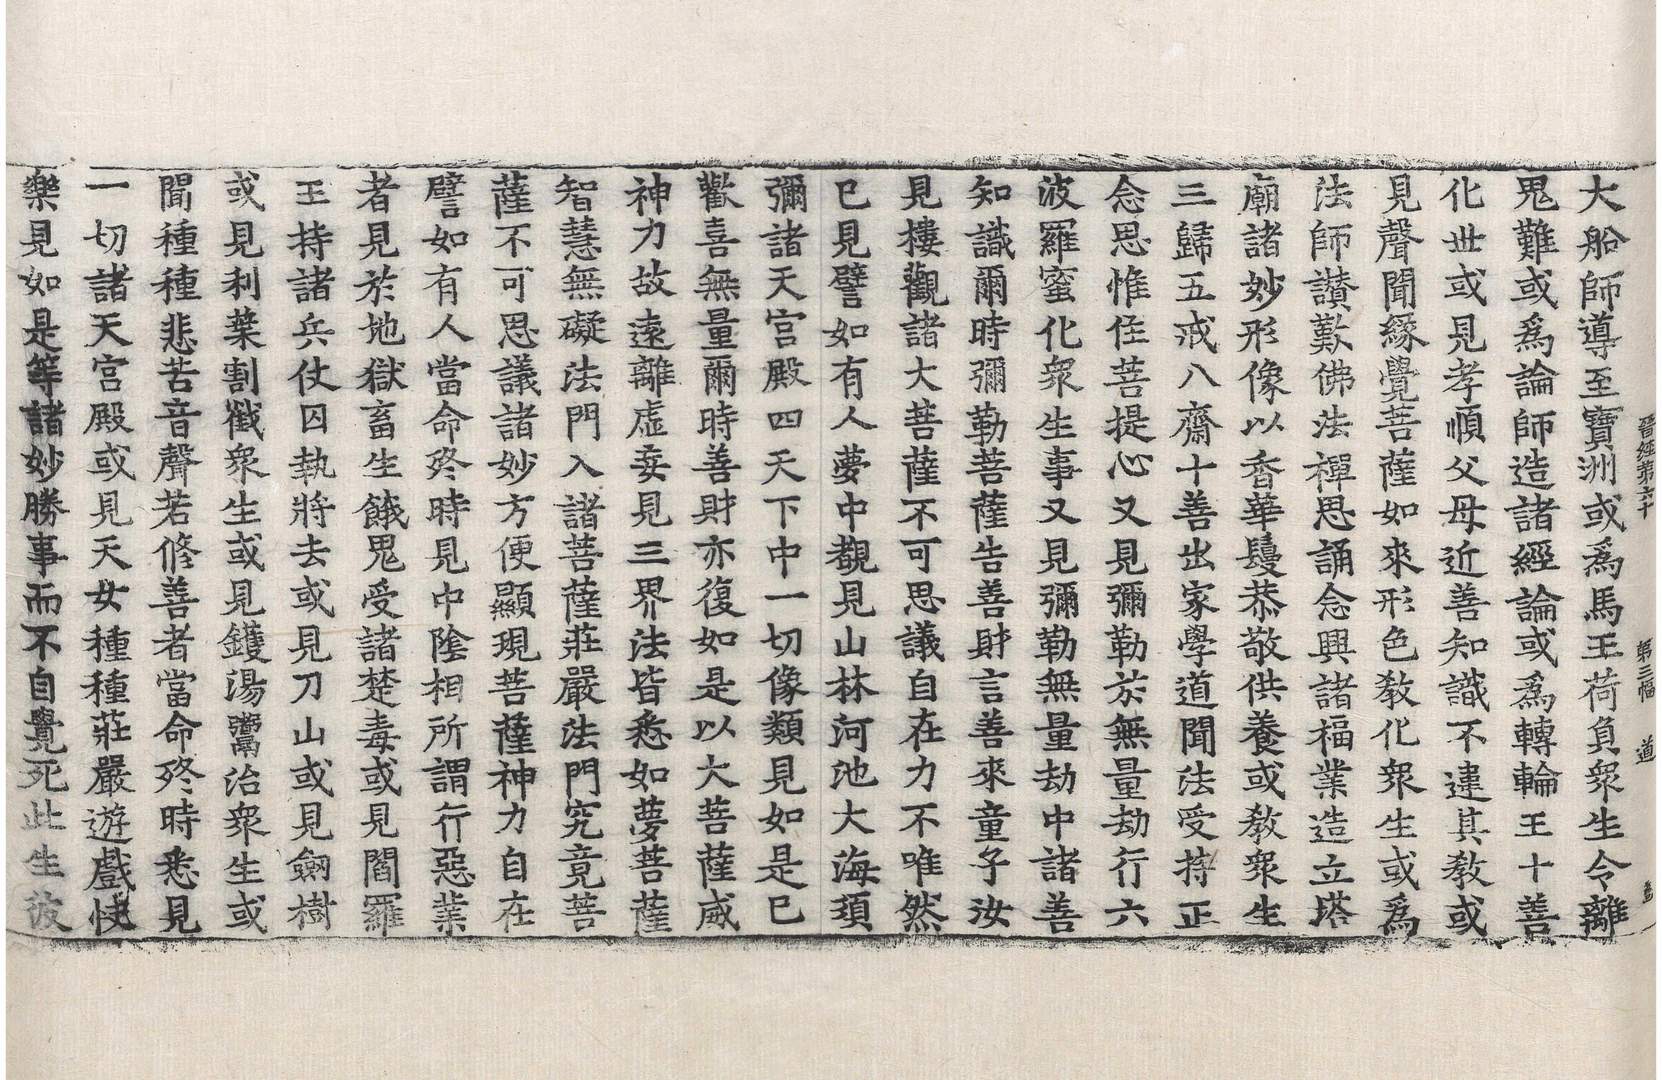 晉經第六十　第三幅　道
大船師導至寶洲或爲馬王荷負衆生令離
鬼難或爲論師造諸經論或爲轉輪王十善
化世或見孝順父母近善知識不違其教或
見聲聞緣覺菩薩如來形色教化衆生或爲
法師讃歎佛法禪思誦念興諸福業造立塔
廟諸妙形像以香華鬘恭敬供養或教衆生
三歸五戒八齋十善出家學道聞法受持正
念思惟住菩提心又見彌勒於無量劫行六
波羅蜜化衆生事又見彌勒無量劫中諸善
知識爾時彌勒菩薩告善財言善來童子汝
見樓觀諸大菩薩不可思議自在力不唯然
已見譬如有人夢中覩見山林河池大海須
彌諸天宮殿四天下中一切像類見如是已
歡喜無量爾時善財亦復如是以大菩薩威
神力故遠離虛妄見三界法皆悉如夢菩薩
智慧無礙法門入諸菩薩莊嚴法門究竟菩
薩不可思議諸妙方便顯現菩薩神力自在
譬如有人當命終時見中陰相所謂行惡業
者見於地獄畜生餓鬼受諸楚毒或見閻羅
王持諸兵仗囚執將去或見刀山或見劒樹
或見利葉割截衆生或見鑊湯鬻治衆生或
聞種種悲苦音聲若修善者當命終時悉見
一切諸天宮殿或見天女種種莊嚴遊戲快
樂見如是等諸妙勝事而不自覺死此生彼